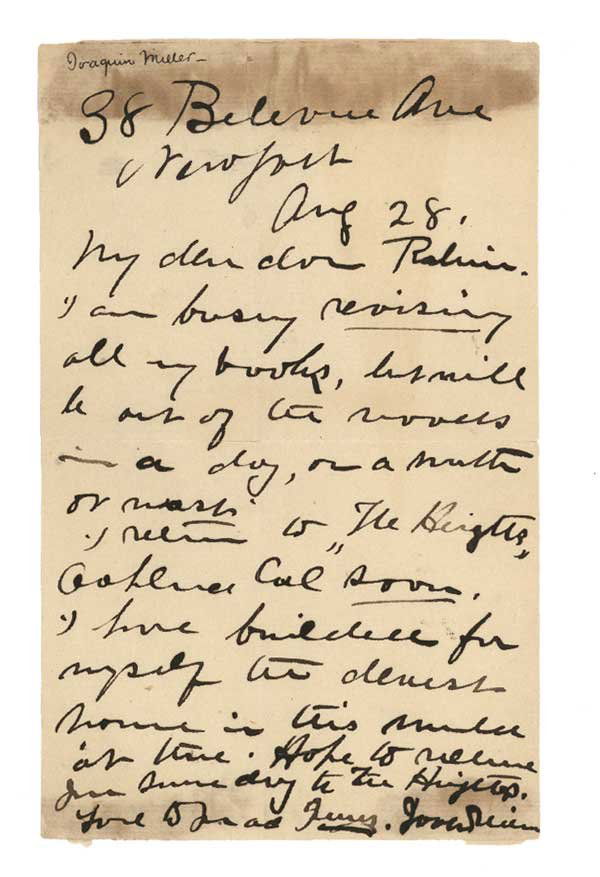 Joaquin Miller-
38 Bellevue Ave
Newport
Aug 28.
My dear dear
I am busy revising
all my books, but will
be out of the woods
in a day, or a
or
I return to "The Heights,"
Oakland Cal soon.
I have builded for
myself the dearest
home in this
at the. Hope to
you some day to the Heights.
Love to you and Joaquin